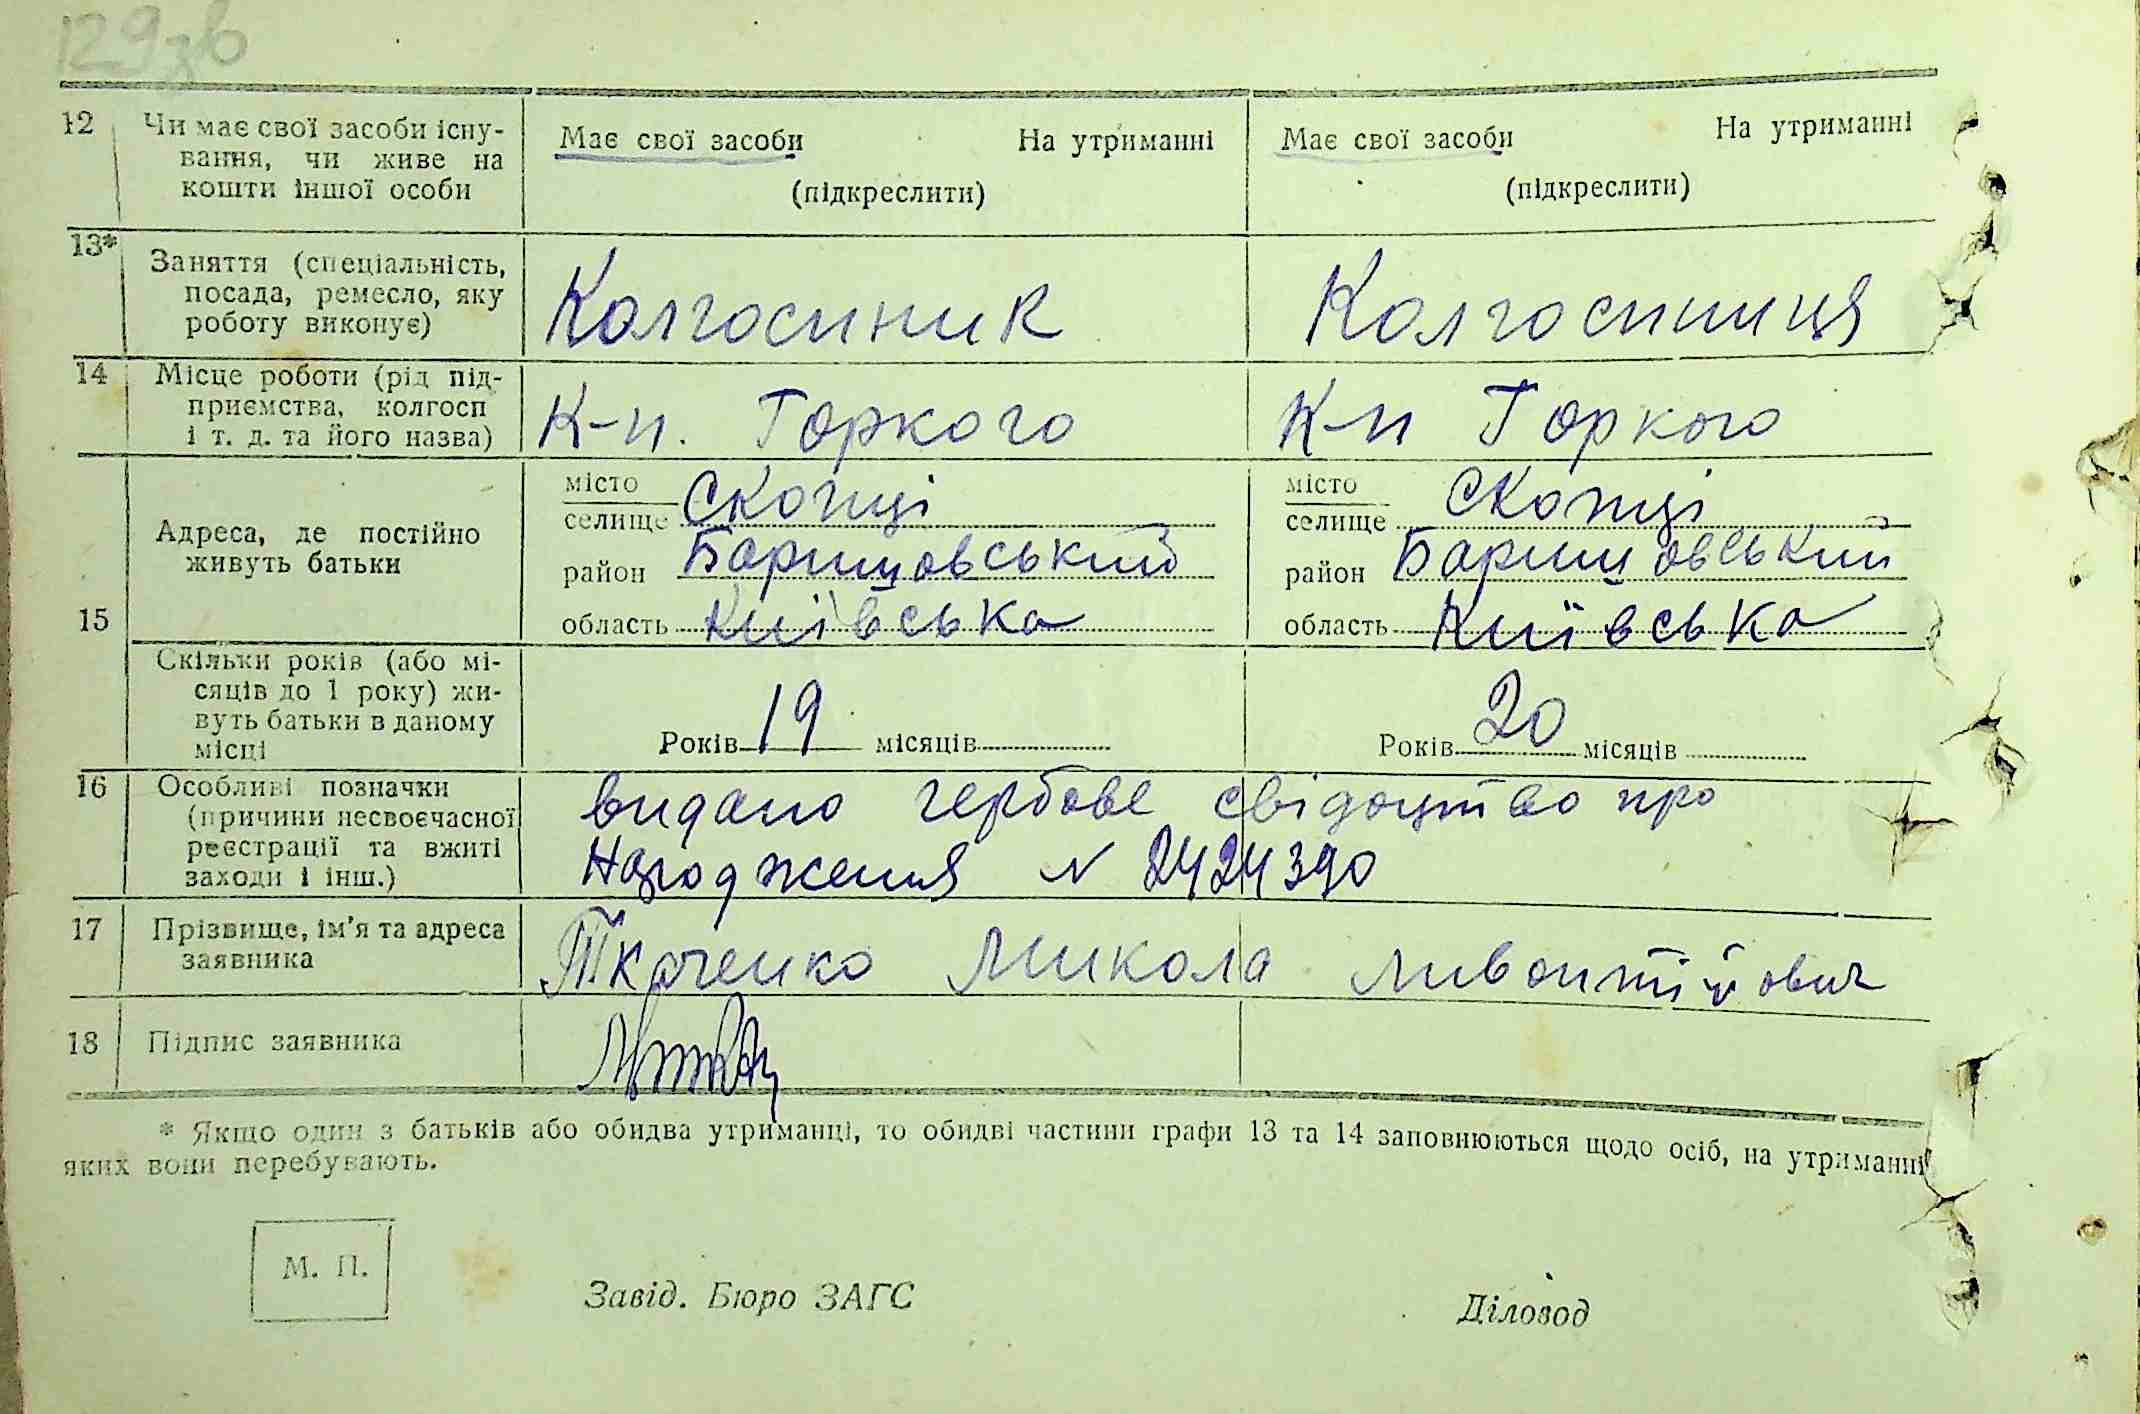 129зв
12 Чи має свої засоби існу-
вання, чи живе на
кошти іншої особи
Має свої засоби На утриманні
(підкреслити)
Має свої засоби На утриманні
(підкреслити)
13* Заняття (спеціальність,
посада, ремесло, яку
роботу виконує)
Колгоспник
Колгоспниця
14 Місце роботи (рід під-
приємства, колгосп
і т. д. та його назва)
К-п. Горкого
К-п Горкого
15 Адреса, де постійно
живуть батьки
місто
селище Скопці
район Баришовський
область Київська
місто
селище Скопці
район Баришовський
область Київська
Скільки років (або мі-
сяців до 1 року) жи-
вуть батьки в даному
місці
Років 19 місяців
Років 20 місяців
16 Особливі позначки
(причини несвоєчасної
реєстрації та вжиті
заходи і інш.)
видано гербове свідоцтво про
народження N 2424390
17 Прізвище, ім'я та адреса
заявника
Ткаченко Микола Ливонтійович
18 Підпис заявника
* Якщо один з батьків або обидва утриманці, то обидві частини графи 13 та 14 заповнюються щодо осіб, на утриманні
яких вони перебувають.
М. П.
Завід. Бюро ЗАГС
Діловод